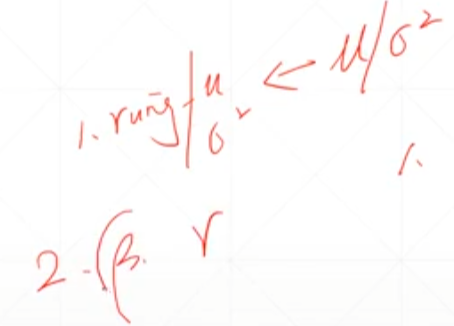 1. runing μ σ² ← μ/σ²
1.
2. (β. γ